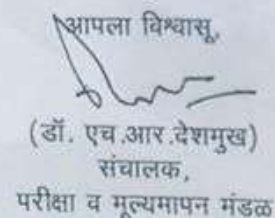 आपला विश्वासू,
(डॉ. एच.आर.देशमुख)
संचालक,
परीक्षा व मूल्यमापन मंडळ